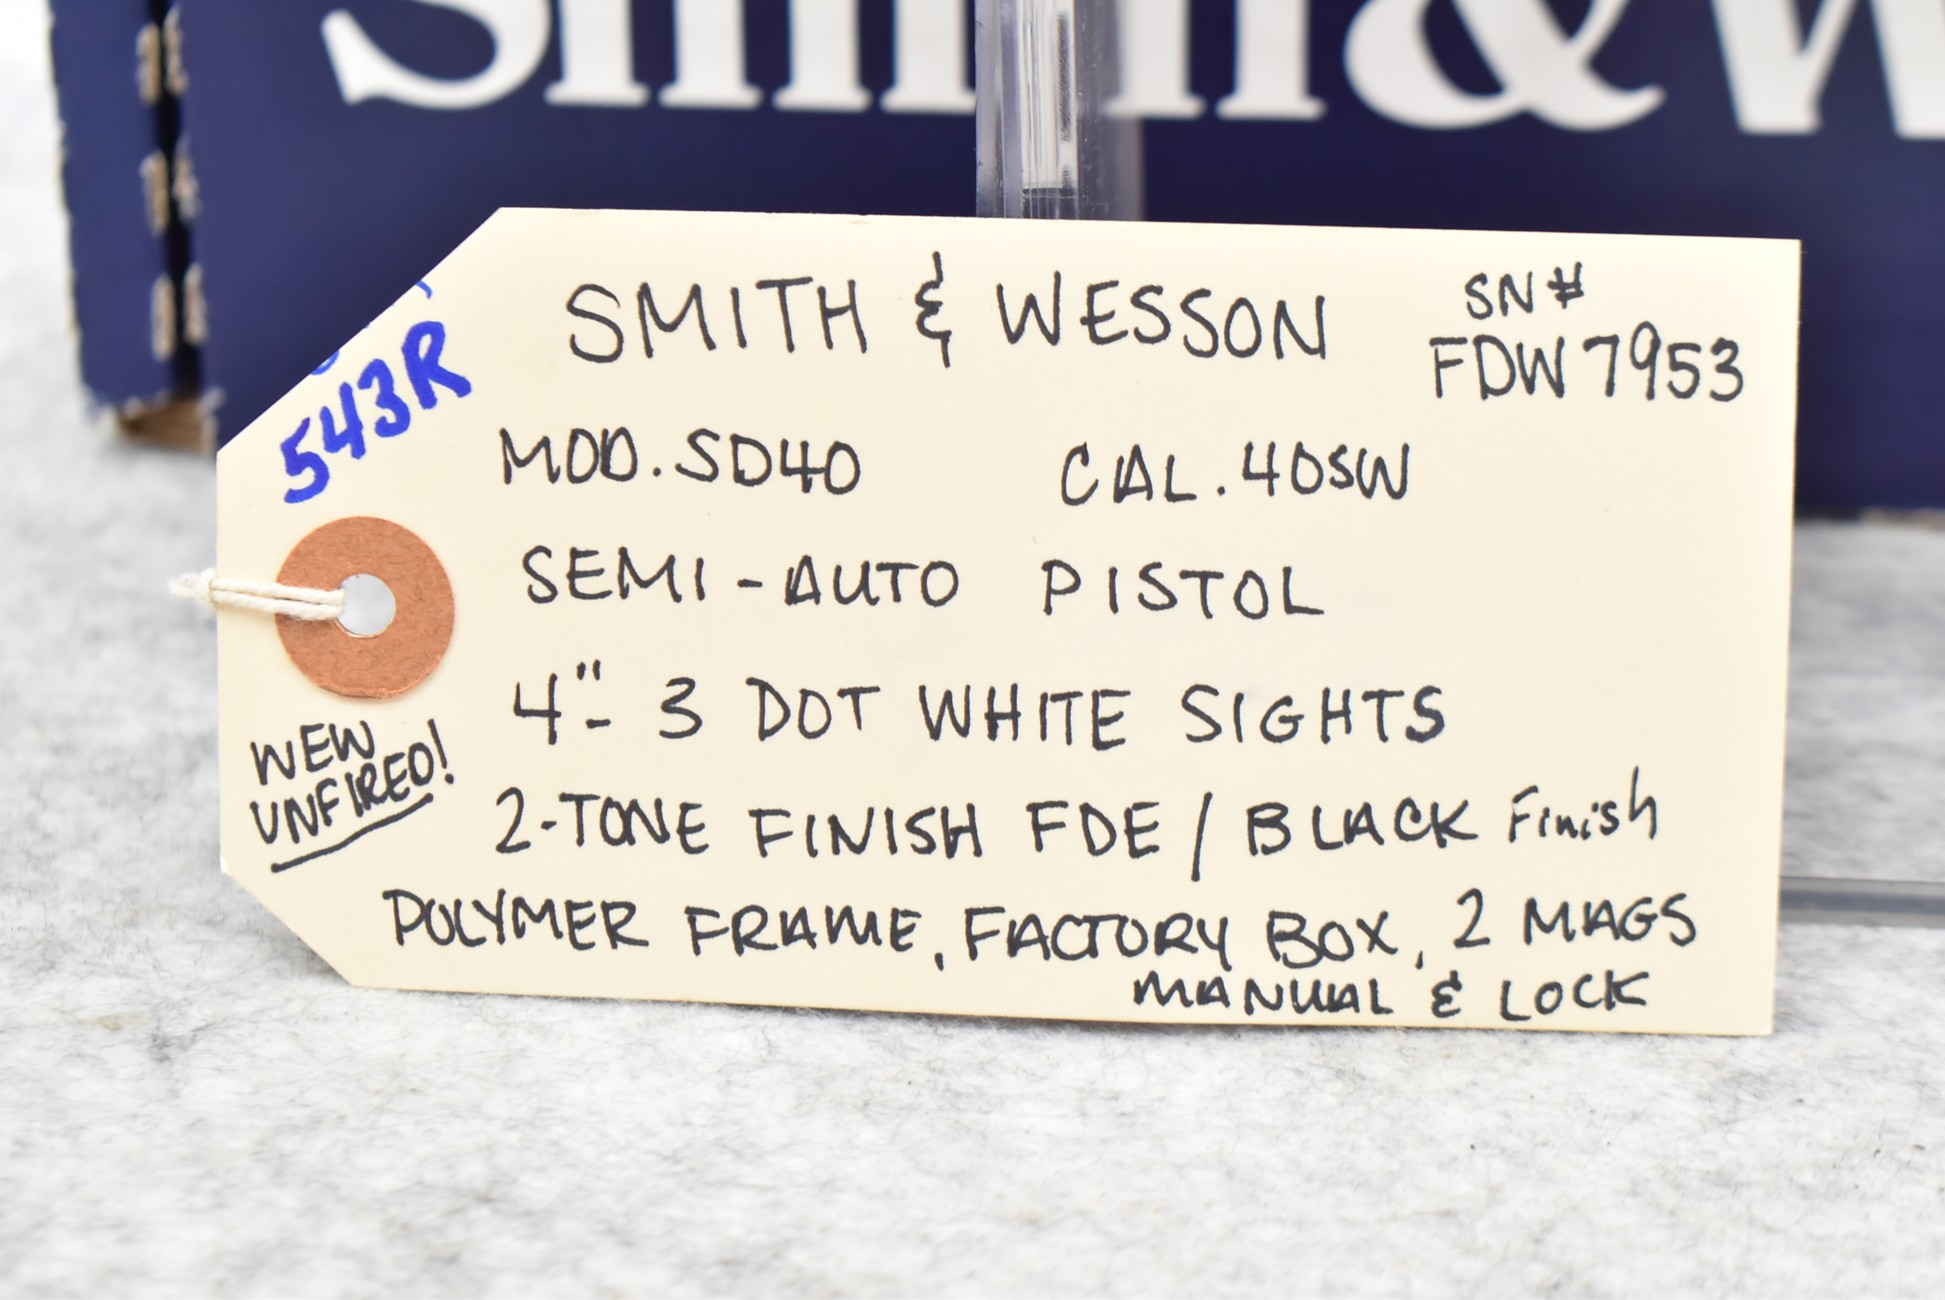 Smith&W
SMITH & WESSON
SN#
FDW7953
543R
MOD. SD40 CAL. 40SW
SEMI-AUTO PISTOL
4"- 3 DOT WHITE SIGHTS
NEW
UNFIRED!
2-TONE FINISH FDE / BLACK Finish
POLYMER FRAME, FACTORY BOX, 2 MAGS
MANUAL & LOCK